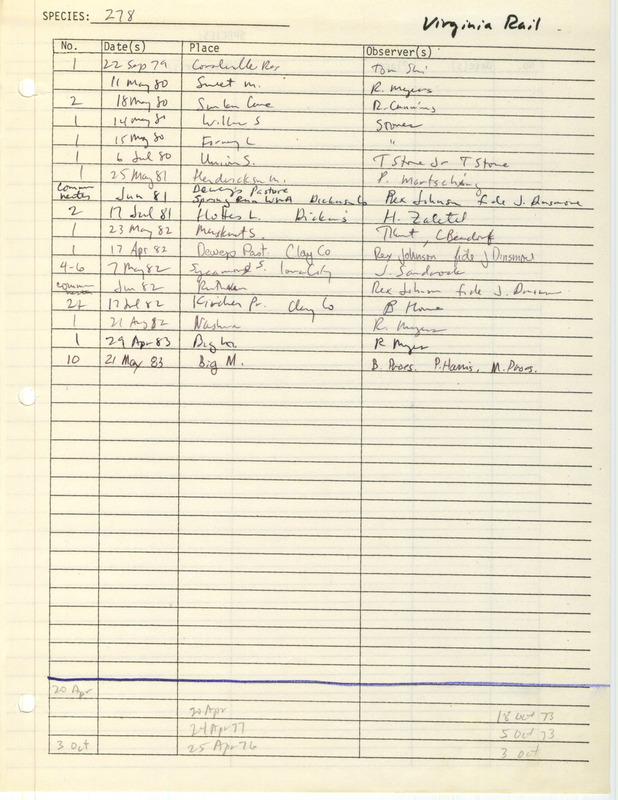 SPECIES: 278 Virginia Rail
No. Date(s) Place Observer(s)
1 22 Sep 79 Coralville Res
11 May 80 Sweet M. R. Myers
2 18 May 80 R. Cummins
1 14 May 80 Willow S Stone
1 15 May 80 "
1 6 Jul 80 Union S. T Stone Jr T Stone
1 25 May 81 Hendrickson M. P. Martsching
common nester Jun 81 Dewey's Pasture Spring Run WMA Dickinson Co Rex Johnson fide J. Dinsmore
2 17 Jul 81 Hottes L. Dickins H. Zaletel
1 23 May 82 Muskrat S T Kent, C Bendorf
1 17 Apr 82 Deweys Past. Clay Co Rex Johnson fide J Dinsmore
4-6 7 May 82 Sycamore S. Iowa City J. Sandrock
common nester Jun 82 Ruthven Rex Johnson fide J. Dinsmore
2+ 17 Jul 82 Kircher Pr. Clay Co B Howe
1 21 Aug 82 Nashua R. Myers
1 29 Apr 83 R Myers
10 21 May 83 Big M. B. Proes. P. Harris, M. Proes.
20 Apr
20 Apr 18 Oct 73
24 Apr 77 5 Oct 73
3 Oct 25 Apr 76 3 Oct